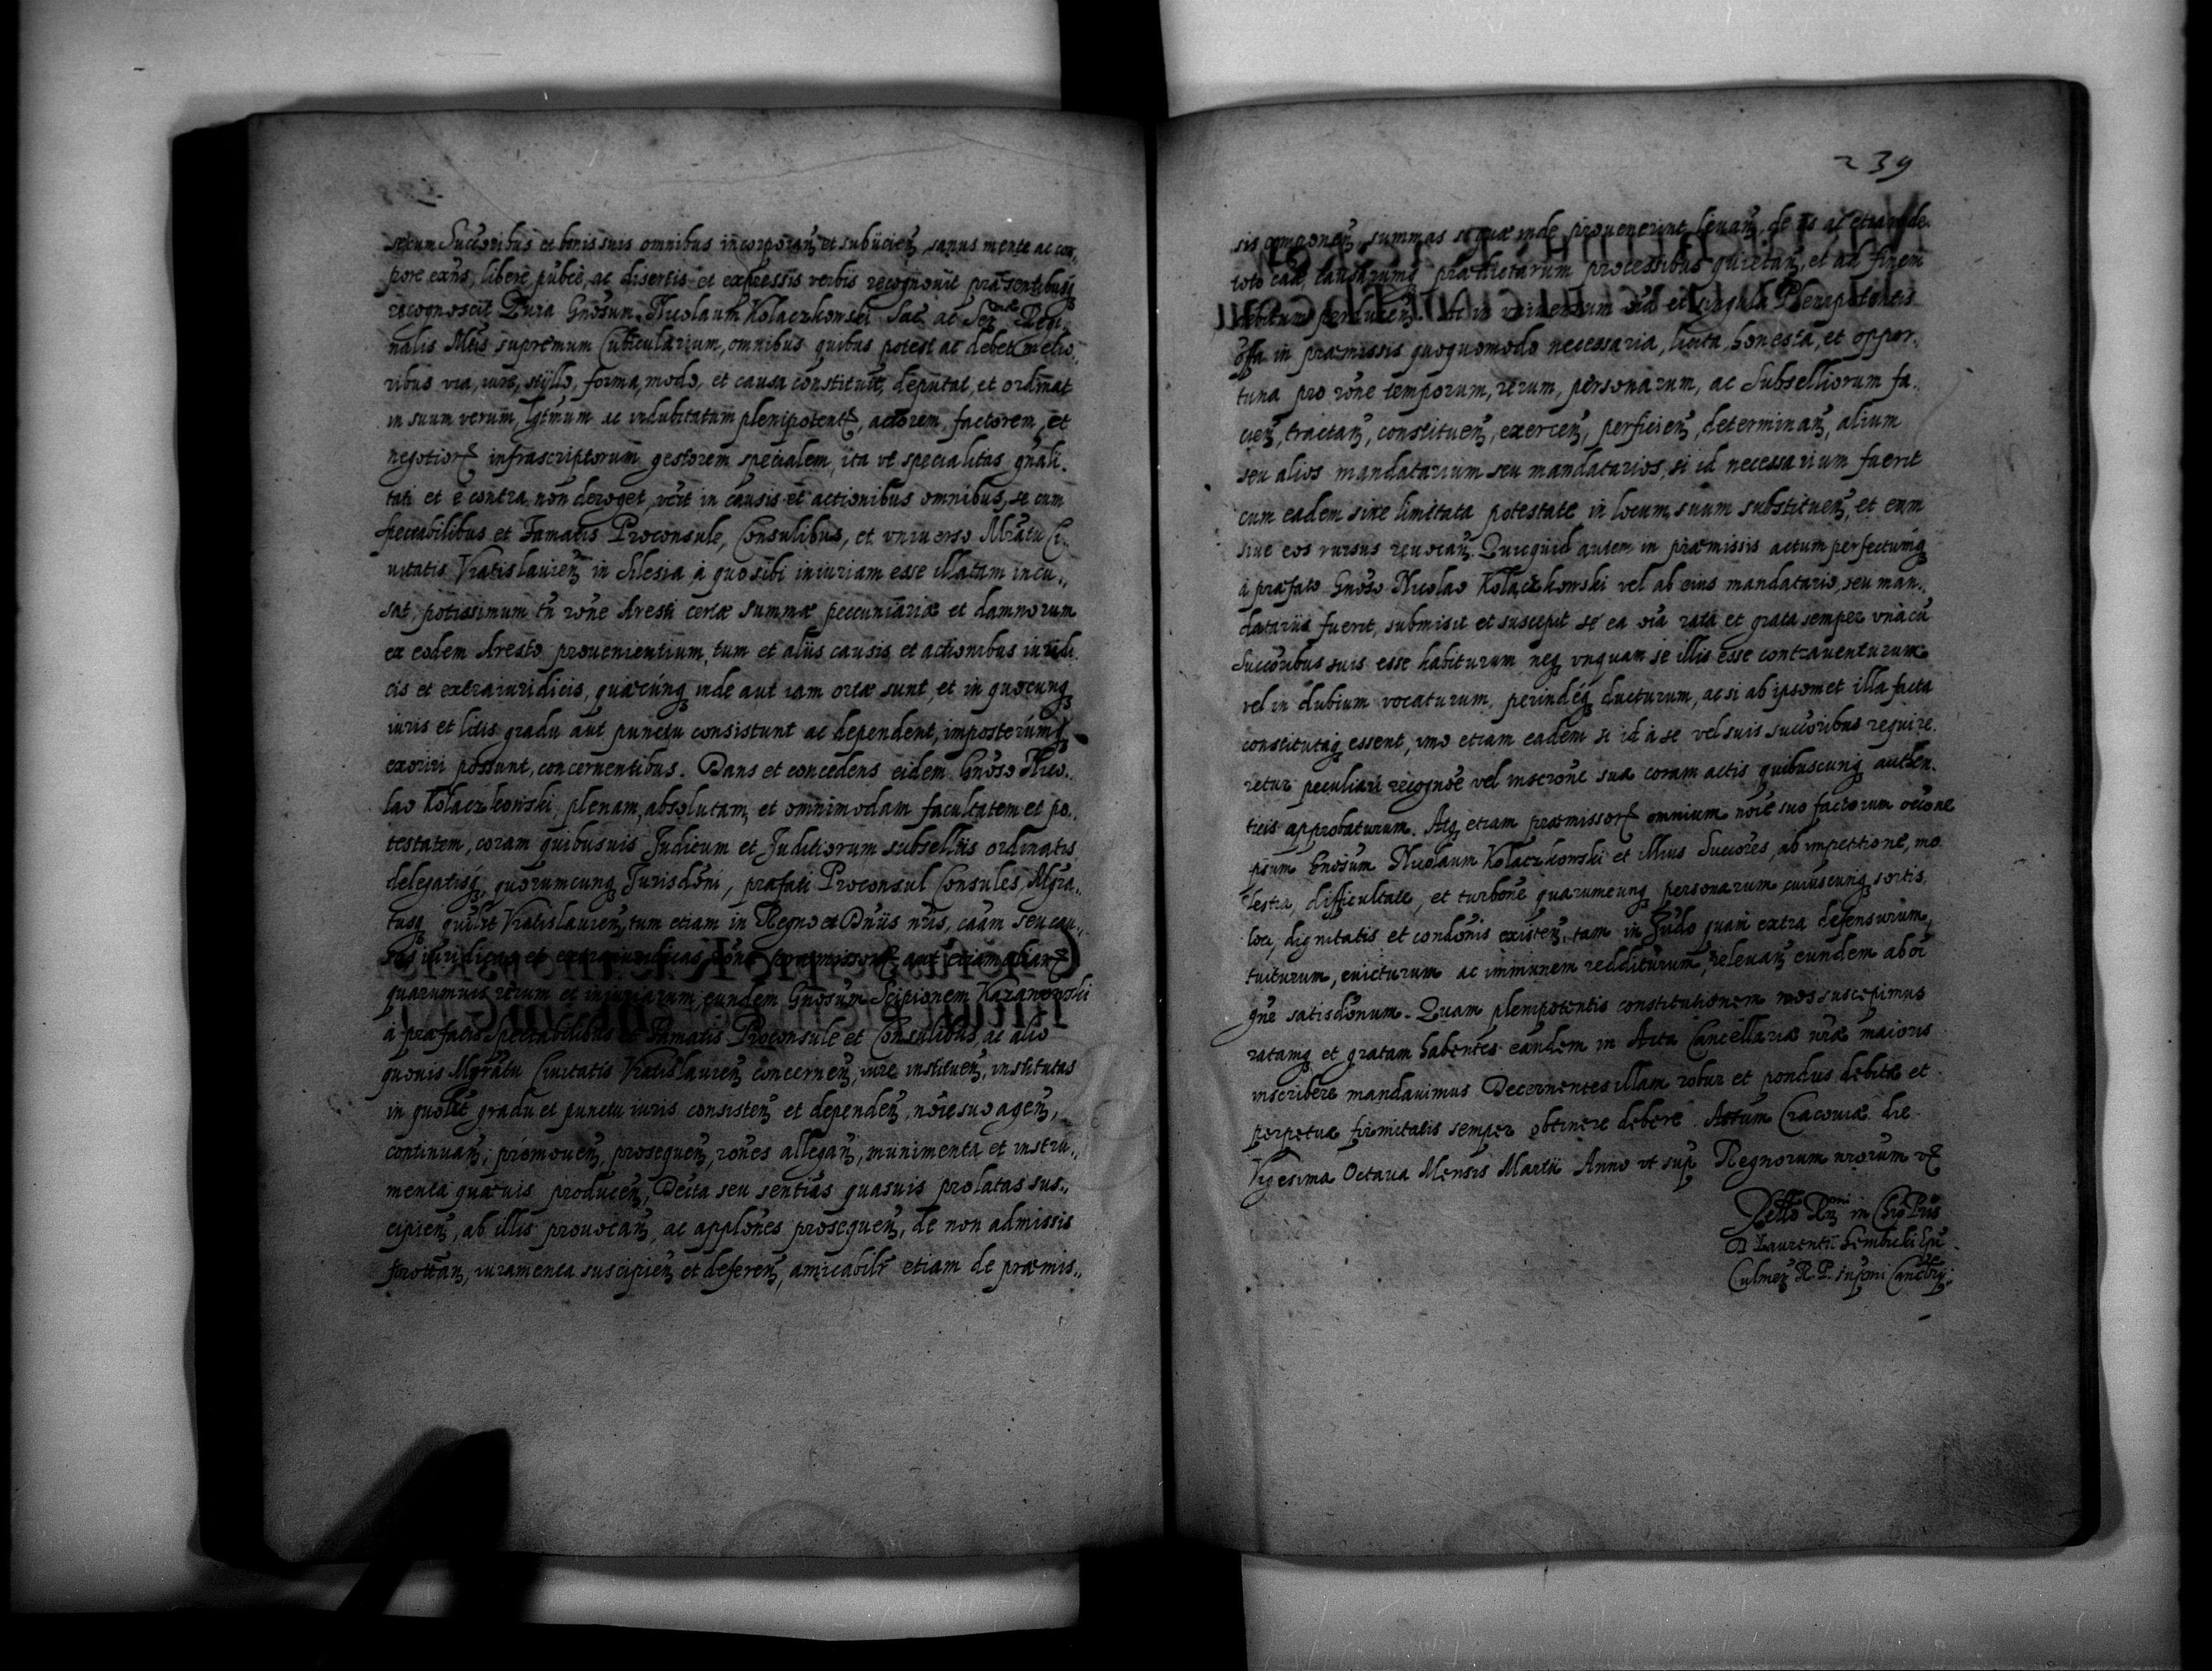 secum Succoribus et bonis suis omnibus incorporan et subiicien, sanus mente ac cor„
pore exns, libere, publce, ac disertis et expressis verbis recognouit præsentibusq
recognoscit Gnosum Nicolaum Kolaczkowski Sac ac Ser Regi„
nalis Mtis supremum Cubicularium, omnibus quibus potest ac debet melio„
ribus via, iure, styllo, forma, modo, et causa constituit, deputat, et ordinat
in suum verum, lgtmum ac indubitatum plenipotent, actorem, factorem, et
negotior infrascriptorum gestorem specialem, ita vt specialitas gnali„
tati et e contra non deroget, vczt in causis et actionibus omnibus, se cum
spectabilibus et Famatis Proconsule, Consulibus, et vniuerso Mratu Ci„
uitatis Vratislauien in Silesia, à quo sibi iniuriam esse illatam incu„
sat, potissimum tn rone Aresti certæ summæ pecuniariæ et damnorum
ex eodem Aresto prouenientium, tum et aliis causis et actionibus iuridi„
cis et extraiuridicis, quæcunq inde aut iam ortæ sunt, et in quocunq
iuris et litis gradu aut punctu consistunt ac dependent, imposterumq
exoriri possunt, concernentibus. Dans et concedens eidem Gnoso Nico„
lao Kolaczkowski, plenam, absolutam, et omnimodam facultatem et po„
testatem, coram quibusuis Judicum et Judiciorum subselliis ordinatis
delegatisq, quorumcunq Jurisdoni, præfati Proconsul Consules, Mgra„
tusq Vratislauien, tum etiam in Regno et Dniis nris, caam seu cau„
sas iuridicas et extraiuridicas rone præmissor aut etiam aliar
quarumuis rerum et iniuriarum eundem Gnosum Scipionem Kazanowski
à præfatis Spectabilibus et Famatis Proconsule et Consulibus, ac alio
quouis Mgratu Ciuitatis Vratislauien concernen, iure instituen, institutas
in quolt gradu et punctu iuris consisten et dependen, noie suo agen,
continuan, promouen, prosequen, rones allegan, munimenta et instru„
menta quæuis producen, Decta seu sentias quasuis prolatas sus„
cipien, ab illis prouocan, ac applones prosequen, de non admissis
prottan, iuramenta suscipien et deferen, amicabilr etiam de præmis„
239
sis componen, summas si quæ inde prouenerint leuan, de iis ac etiam de
toto caæ, causarumq prædictarum processibus quietan, et ad finem
debitum perducen. Ac in vniuersum oia et singula Plenipotentis
offa in præmissis quoquomodo necessaria, licita, honesta, et oppor„
tuna pro rone temporum, rerum, personarum, ac Subselliorum fa„
cien, tractan, constituen, exercen, perficien, determinan, alium
seu alios mandatarium seu mandatarios, si id necessarium fuerit
cum eadem siue limitata potestate in locum suum substituen, et eum
siue eos rursus reuocan. Quicquid autem in præmissis actum perfectumq
à præfato Gnoso Nicolao Kolaczkowski vel ab eius mandatario, seu man„
datariis fuerit, submisit et suscepit se ea oia rata et grata semper vnàcu
Succoribus suis esse habiturum neq vnquam se illis esse contrauenturum
vel in dubium vocaturum, perindéq ducturum, ac si ab ipsomet illa facta
constitutaq essent, imo etiam eadem si id à se vel suis succoribus require„
retur peculiari recognoe vel inscrone sua coram actis quibuscunq authen„
ticis approbaturum. Atq etiam præmissor omnium noie suo factorum oecone
ipsum Gnosum Nicolaum Kolaczkowski et illius Succores, ab impetitione, mo„
lestia, difficultate, et turbone quarumcunq personarum cuiuscunq sortis,
loci, dignitatis et condonis existen, tam in Judo quam extra defensurum,
tuiturum, euicturum ac immunem redditurum, releuan eundem ab oi
gne satisdonum. Quam plenipotentis constitutionem nos suscepimus
ratamq et gratam habentes eandem in Acta Cancellariæ nræ maioris
inscribere mandauimus Decernentes illam robur et pondus debitæ et
perpetuæ firmitatis semper obtinere debere. Actum Cracouiæ die
Vigesima Octaua Mensis Martii Anno vt sup Regnorum nrorum
Rello Rm in Chro Pris
D Laurentii Gembicki Epi
Culmen R. P. Supmi Cancrii